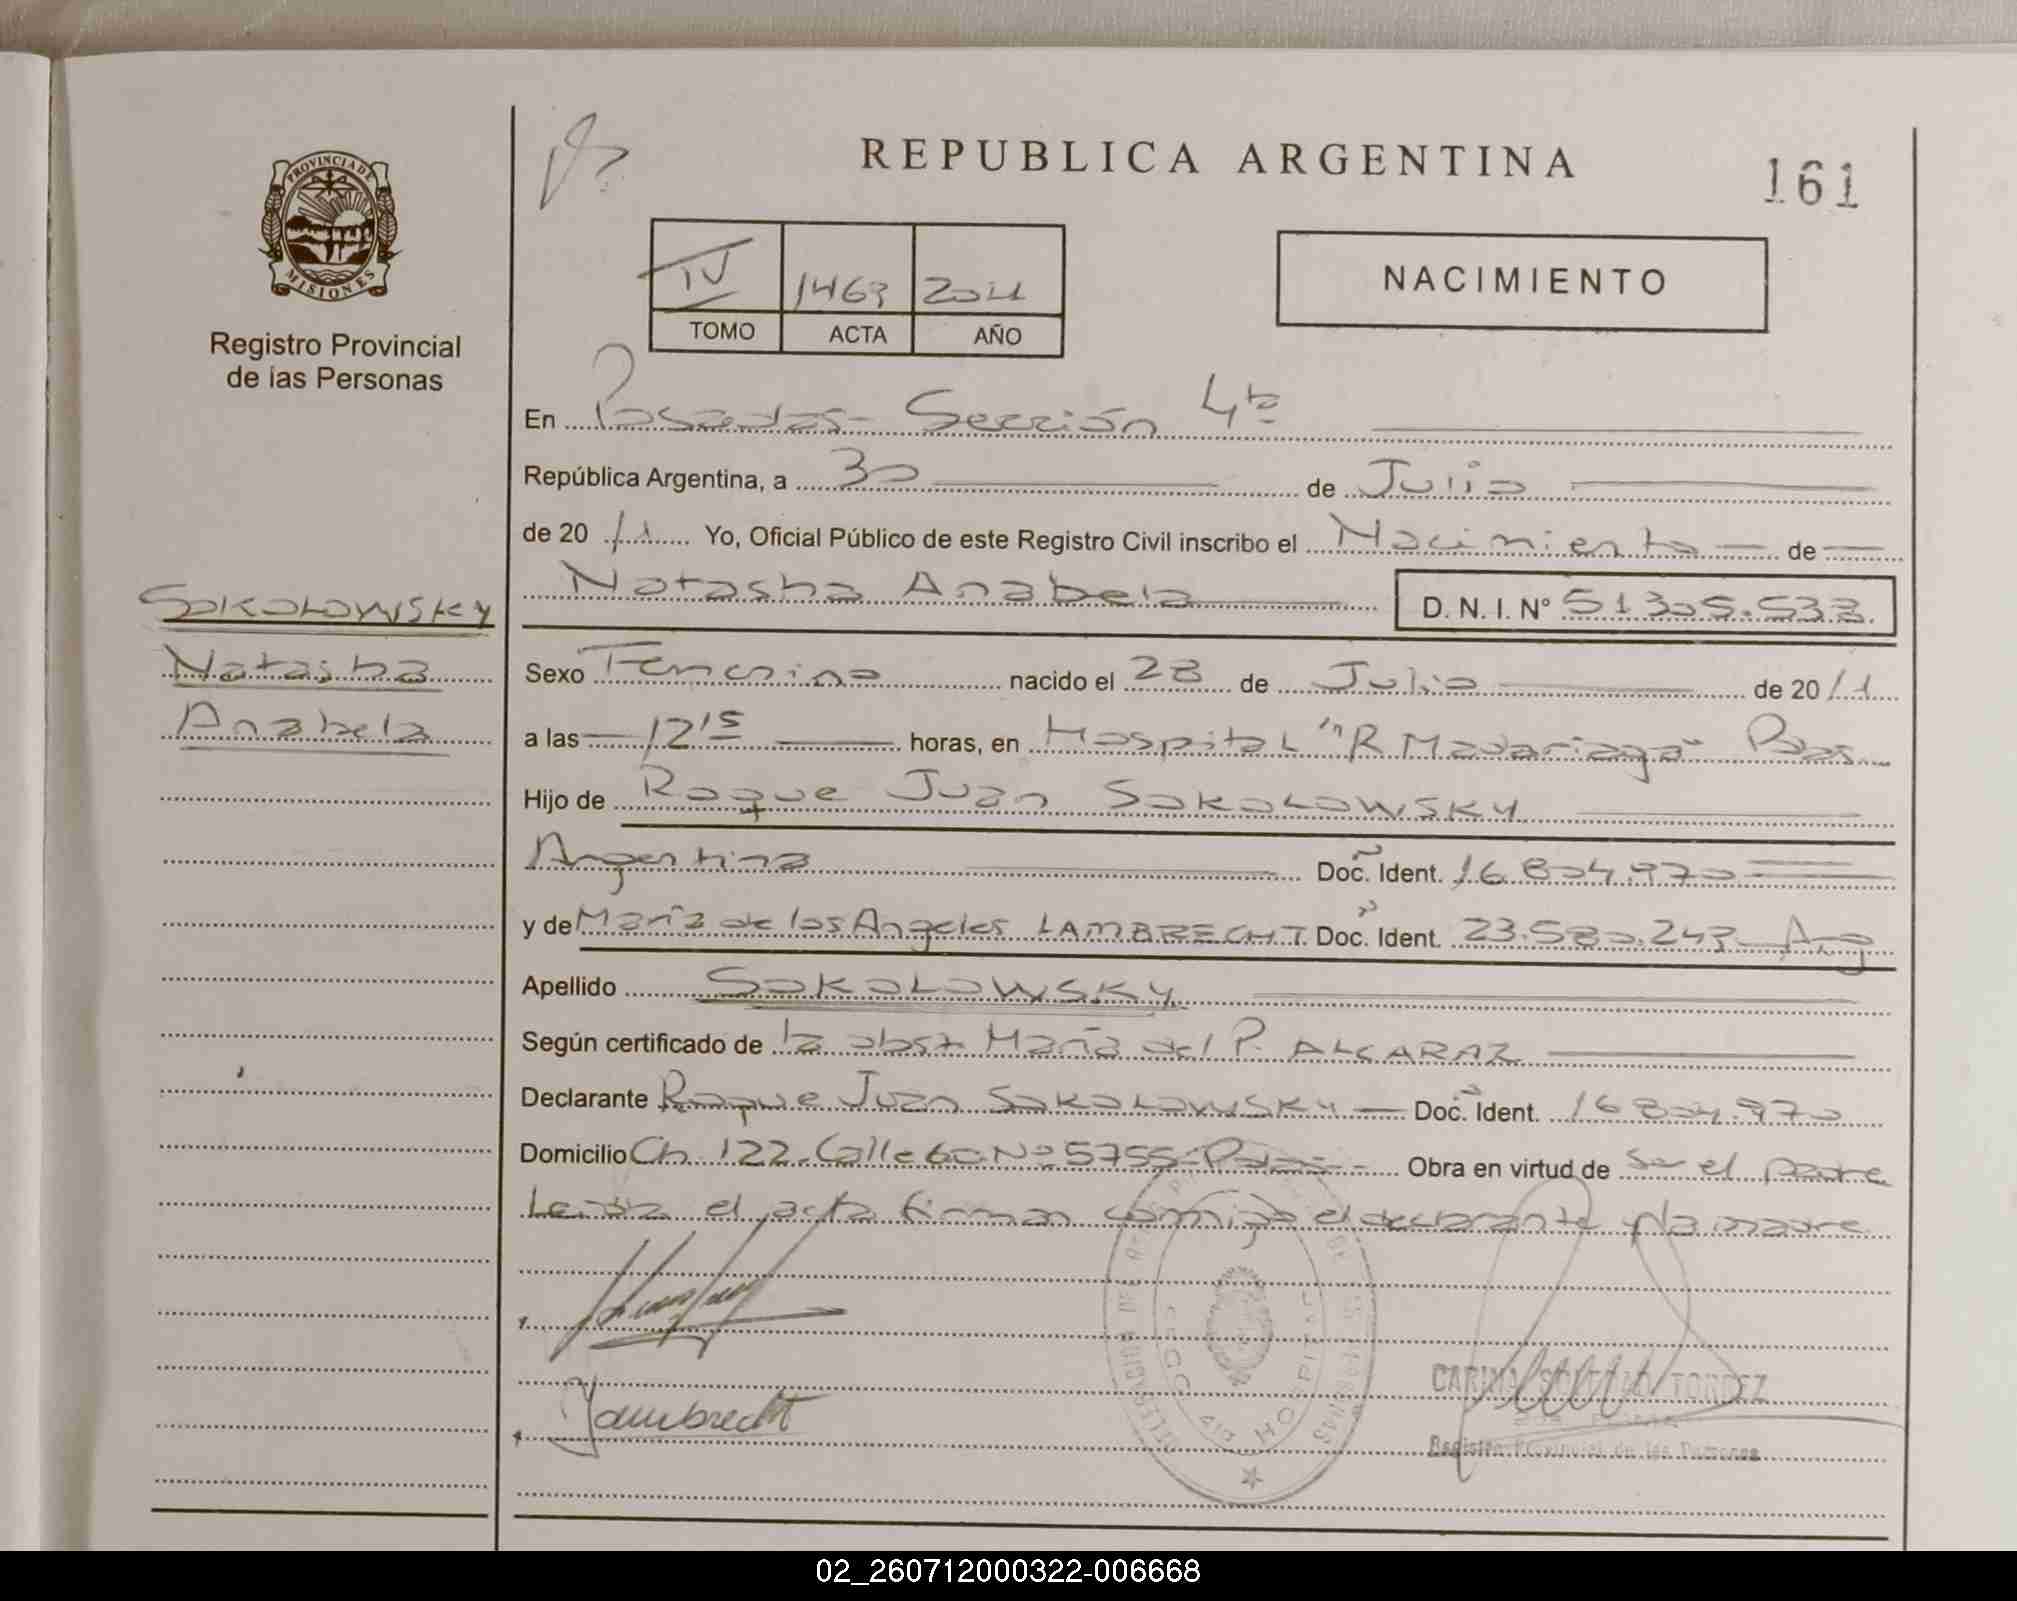 REPUBLICA ARGENTINA
161
PROVINCIA DE
MISIONES
Registro Provincial
de las Personas
IV 1463 2011
TOMO ACTA AÑO
NACIMIENTO
En Posadas - Sección 4ta
República Argentina, a 30 de Julio
de 20 11 Yo, Oficial Público de este Registro Civil inscribo el Nacimiento de
Natasha Anabela D. N. I. N° 51.305.533.
SOKOLOWSKY
Natasha
Anabela
Sexo Femenino nacido el 28 de Julio de 20 11
a las 12 15 horas, en Hospital "R Madariaga" Pdas
Hijo de Roque Juan SOKOLOWSKY
Argentina Doc. Ident. 16.804.970
y de María de los Angeles LAMBRECHT Doc. Ident. 23.580.243 Arg
Apellido SOKOLOWSKY
Según certificado de la obst María del P. ALCARAZ
Declarante Roque Juan SOKOLOWSKY Doc. Ident. 16804.970
Domicilio Ch. 122 - Calle 60 Nº 5755 - Pdas - Obra en virtud de ser el padre
Leída el acta firman conmigo el declarante y la madre
Lambrecht
HOSPITAL
CARINA SOLEDAD TORREZ
Registro Provincial de las Personas
02_260712000322-006668